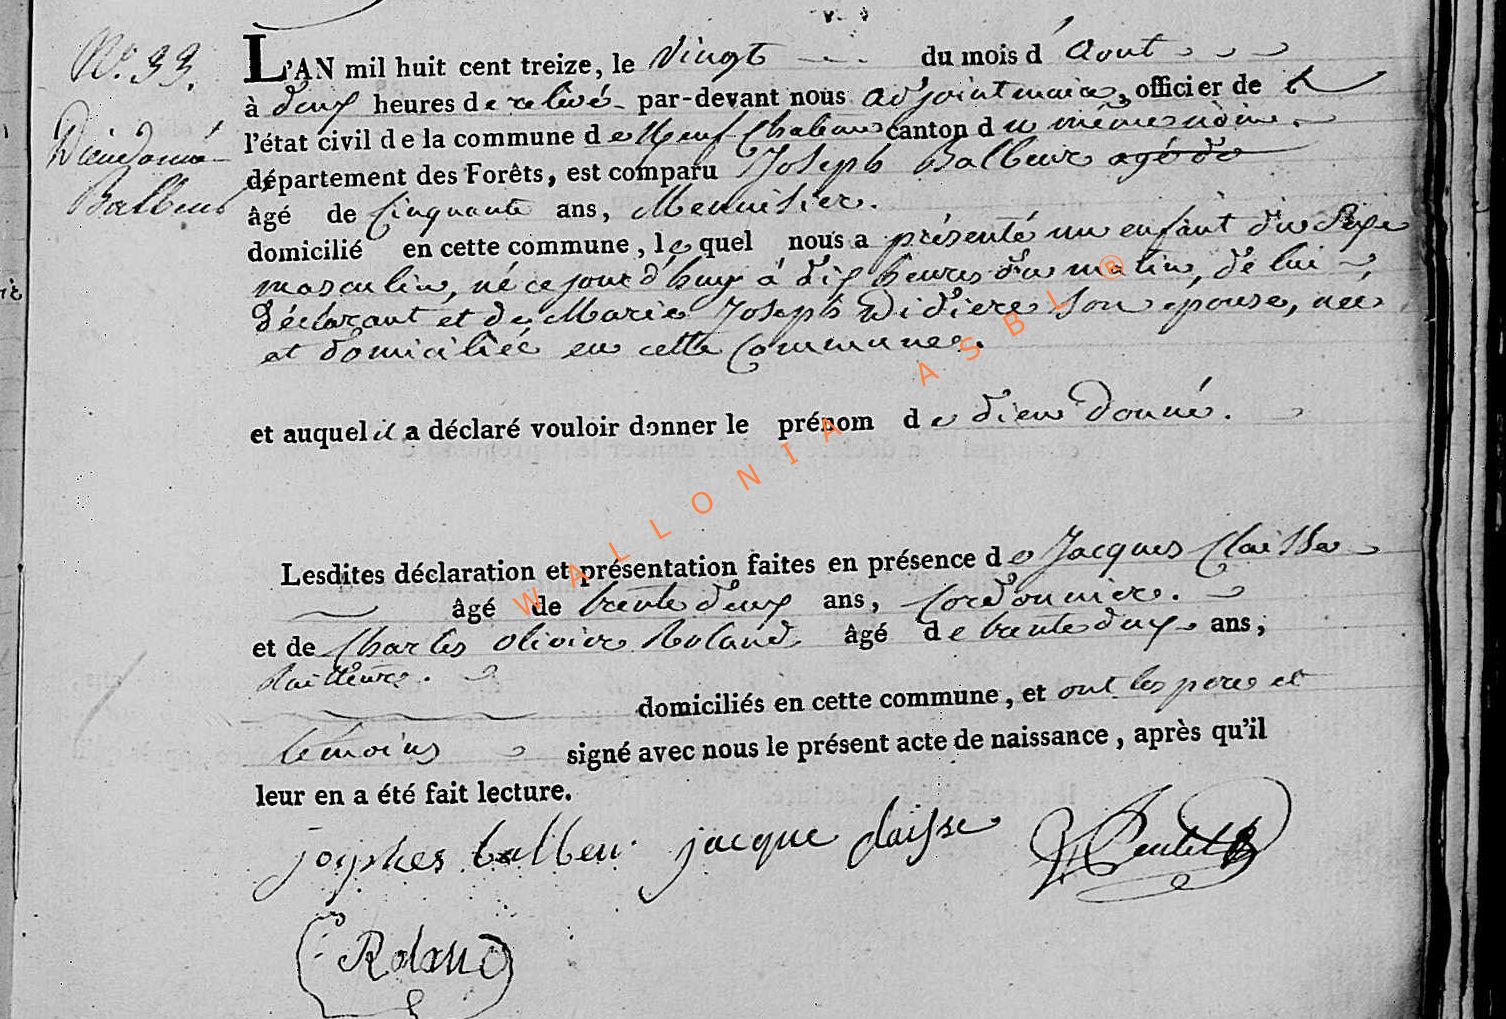 N.° 33.
Dieudonné
Balbeur
L'AN mil huit cent treize, le vingt du mois d'aout
à deux heures de relevé par-devant nous adjoint maire, officier de
l'état civil de la commune de Neufchateau canton du même nom.
département des Forêts, est comparu Joseph Balbeur agé de
âgé de Cinquante ans, Menuisier.
domicilié en cette commune, lequel nous a présenté un enfant du Sexe
masculin, né ce jourd'huy à dix heures du matin, de lui
déclarant et de Marie Joseph Didier son épouse, née
et domiciliée en cette Commune.
et auquel il a déclaré vouloir donner le prénom de dieu donné.
Lesdites déclaration et présentation faites en présence de Jacques Claisse
âgé de trente deux ans, Cordonnier.
et de Charles olivier Roland âgé de trente deux ans,
tailleur.
domiciliés en cette commune, et ont les pere et
témoins signé avec nous le présent acte de naissance, après qu'il
leur en a été fait lecture.
josphes balbeu jacque claisse
Roland
WALLONIA ASBL ®